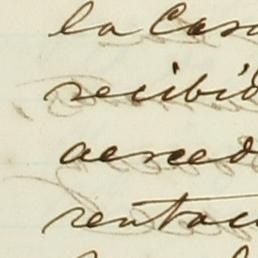 la Casa
recibid
acreed
rentac